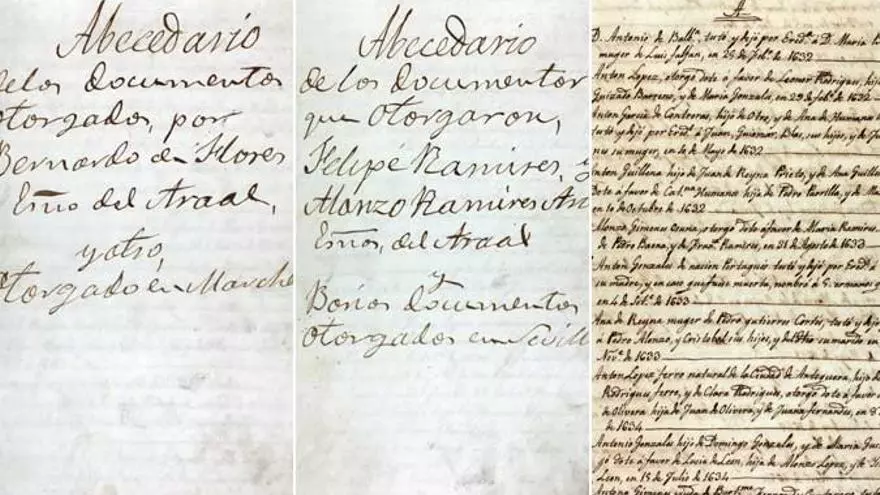 Abecedario
de los documentos
otorgados, por
Bernardo de Flores
Esno del Araal,
y otro,
otorgado en Marche
Abecedario
de los documentos
que otorgaron,
Felipe Ramires, y
Alonzo Ramires
Esnos, del Araal
y
Barios documentos
otorgados en Sevill
A
D. Antonio de testó y dejó por Ered.a á D. Maria
muger de Luis, falfan, en 25 de Feb.o de 1632
Anton Lopez, otorgó dote á favor de Leonor Rodrigues, hija
Guizado Barrera, y de Maria Gonzales, en 29 de feb.o de 1632
Anton Garcia de Contreras, hijo de Otro, y de Ana de Humanes
testó y dejó por Ered.s á Juan, Guiomar, Blas, sus hijos, y de
su muger, en 16 de Mayo de 1632
Anton Guillena hijo de Juan de Reyna Prieto, y de Ana Guillen
Dote á favor de Cat.na Humanes hija de Pedro Parrilla, y de
en 10 de Octubre de 1632
Alonzo Gimenes otorgó dote á favor de Maria Ramires
de Pedro Baena, y de Fran.ca Ramires, en 21 de Agosto de 1633
Anton Gonzales de nacion Portugues testó y dejó por Ered.a á
su madre, y en caso que fuese muerta, nombró á
en 4 de Set.e de 1633
Ana de Reyna muger de Pedro gutierres Cortés, testó y dejó
á Pedro Alonzo, y Cristobal sus hijos, y de dho su marido en
Nov.e de 1633
Anton Lopez ferro natural de la Ciudad de Antequera, hijo de
Rodrigues ferro, y de Clara Rodrigues, otorgó dote á favor
de Olivera hija de Juan de Olivera, y de Juana fernandes, en
de 1634
Antonio Gonzales hijo de Domingo Gonzales, y de Maria
gó dote á favor de Lucia de Leon, hija de Alonzo Lopez, y de
Leon, en 15 de Julio de 1634